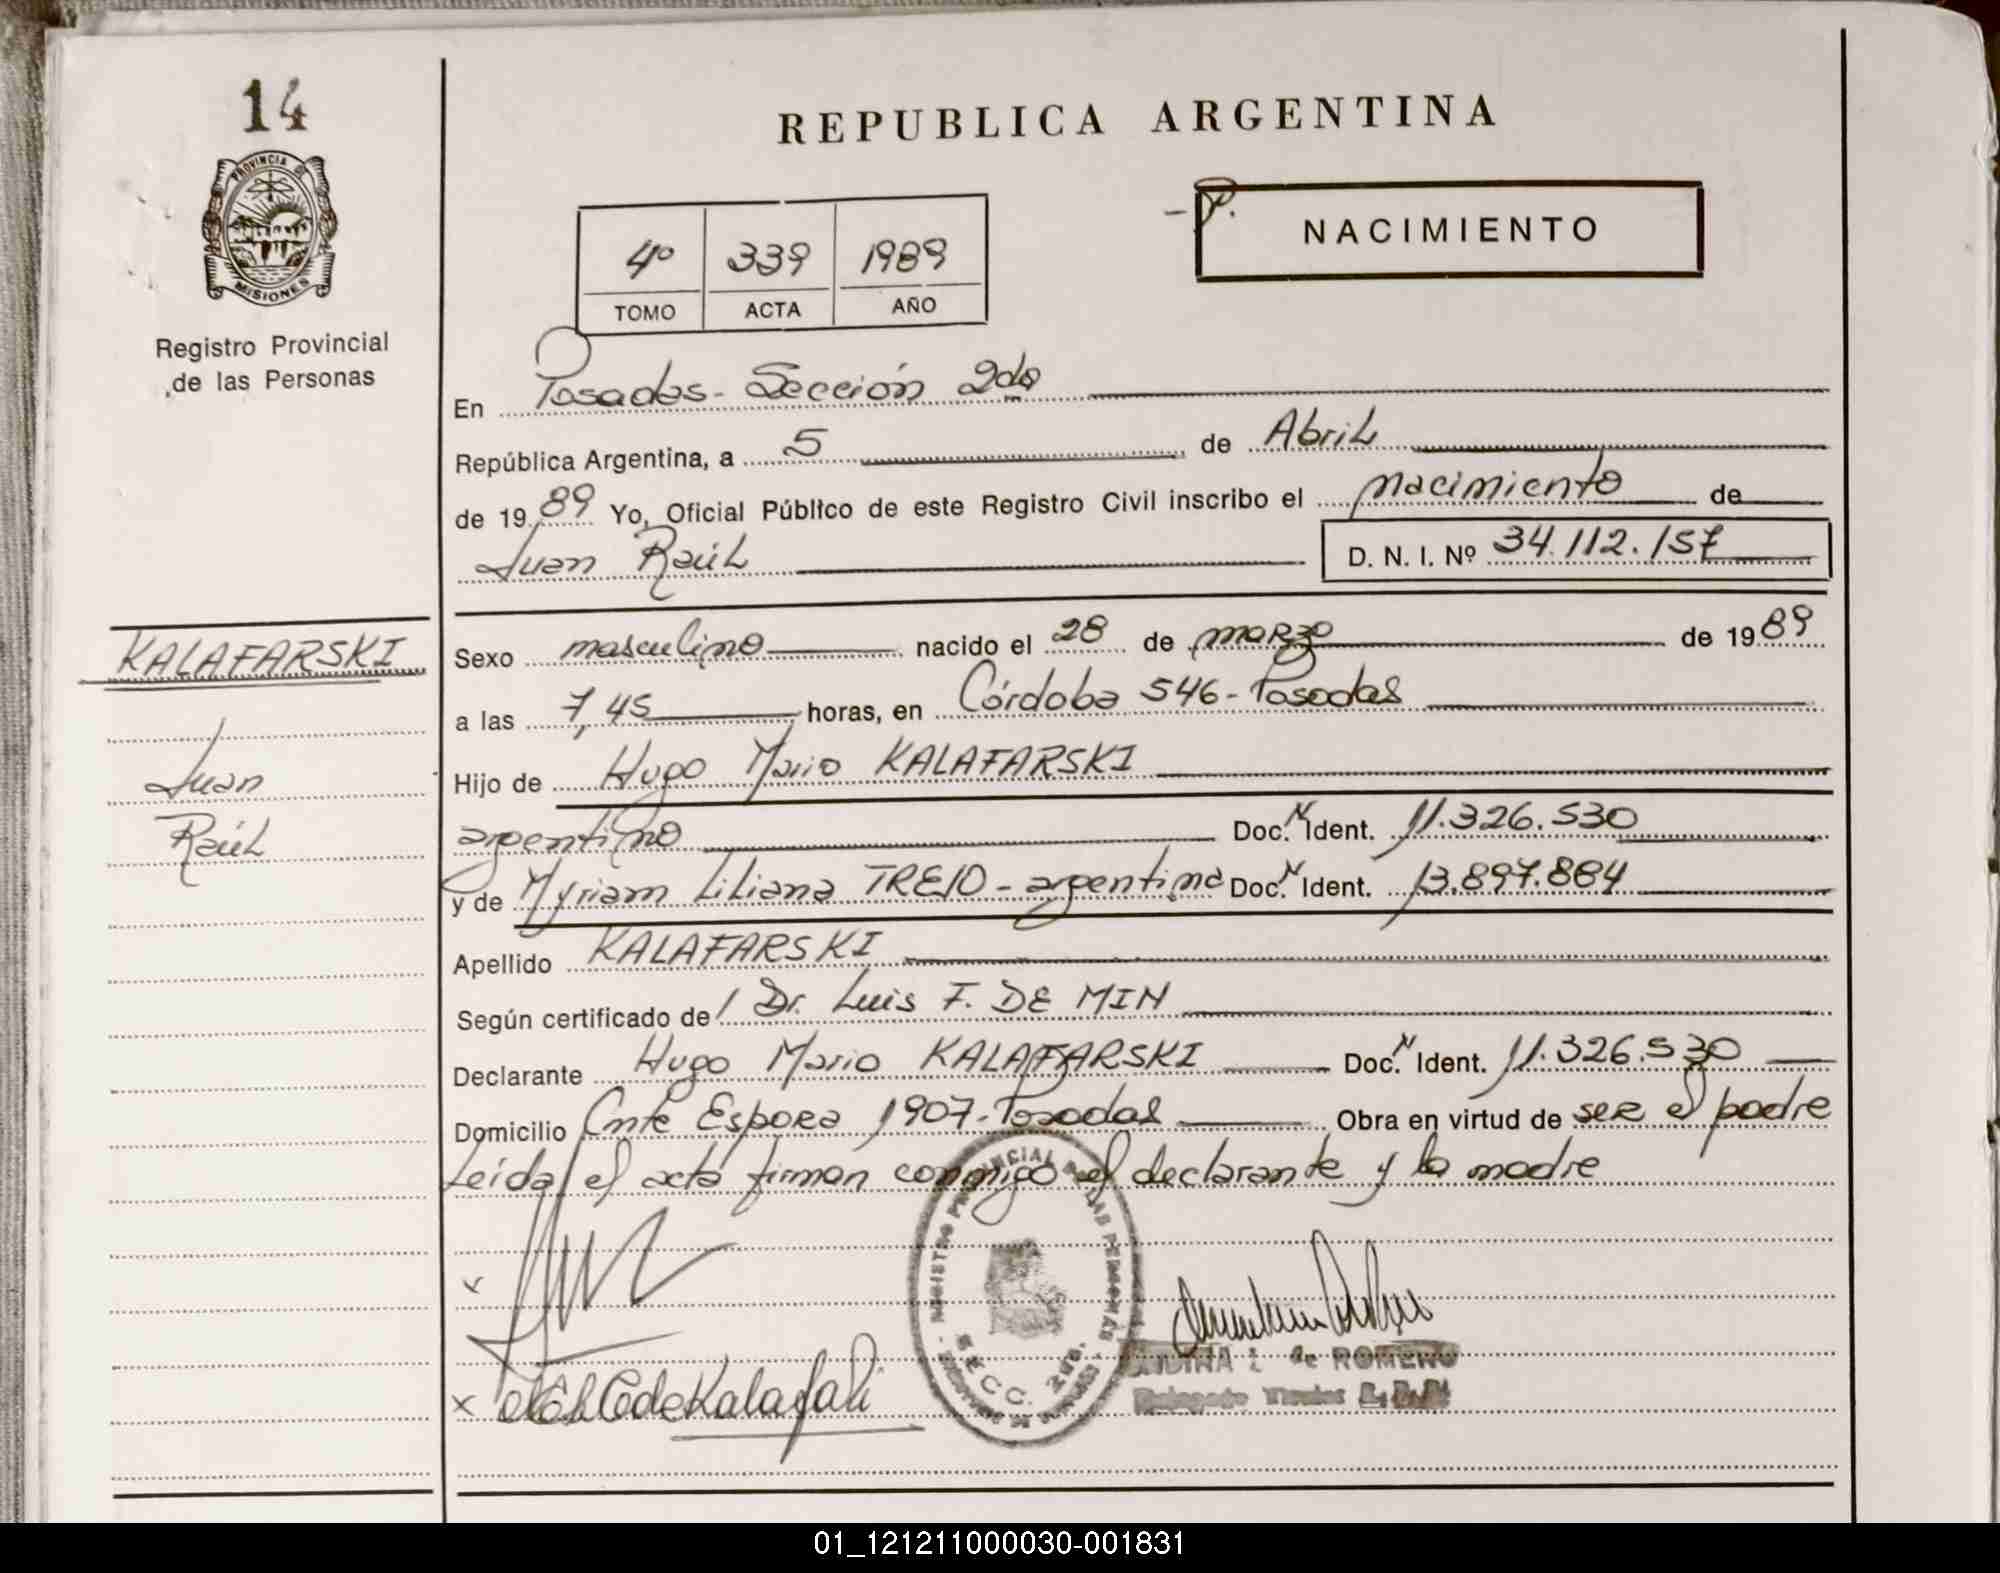 14
REPUBLICA ARGENTINA
PROVINCIA DE
MISIONES
Registro Provincial
de las Personas
4º 339 1989
TOMO ACTA AÑO
NACIMIENTO
En Posadas - Sección 2da
República Argentina, a 5 de Abril
de 1989 Yo, Oficial Público de este Registro Civil inscribo el nacimiento de
Juan Raúl D. N. I. Nº 34.112.157
KALAFARSKI
Juan
Raúl
Sexo masculino nacido el 28 de marzo de 1989
a las 7,45 horas, en Córdoba 546 - Posadas
Hijo de Hugo Mario KALAFARSKI
argentino Doc. N Ident. 11.326.530
y de Myriam Liliana TREJO - argentina Doc. N Ident. 13.897.884
Apellido KALAFARSKI
Según certificado de Dr. Luis F. DE MIN
Declarante Hugo Mario KALAFARSKI Doc. N Ident. 11.326.530
Domicilio Cnte Espora 1907 - Posadas Obra en virtud de ser el padre
Leída el acta firman conmigo el declarante y la madre
REGISTRO PROVINCIAL DE LAS PERSONAS
SECC. 2da.
de ROMERO
01_121211000030-001831